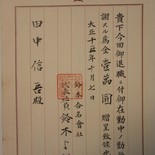 貴下今回御退職ニ付御在勤中ノ勤労ヲ
謝スル為メ金壹萬圓贈呈致候也
大正十五年十月七日
鈴木合名會社
鈴木
田中信吾殿